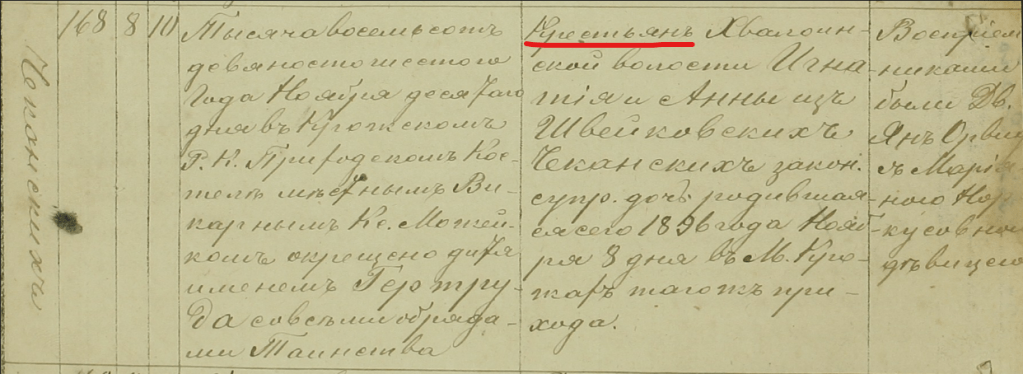 Чеканскихъ
168 8 10
Тысяча восемьсотъ
девяносто шестого
года Ноября десятаго
дня въ Крожскомъ
Р. К. Приходскомъ Кос-
телѣ мѣстнымъ Ви-
карнымъ Кс.Можей-
комъ окрещено дитя
именемъ Гертру-
да со всѣми обряда-
ми Таинства
Крестьянъ Хвалоин-
ской волости Игна-
тія и Анны изъ
Швейковскихъ
Чеканскихъ закон.
супр. дочь родившая-
ся сего 1896 года Нояб-
ря 8 дня въ М. Кро-
жахъ тогожъ при-
хода.
Воспріем-
никами
были Дв.
Янъ
съ Марі
ною
дѣвицею